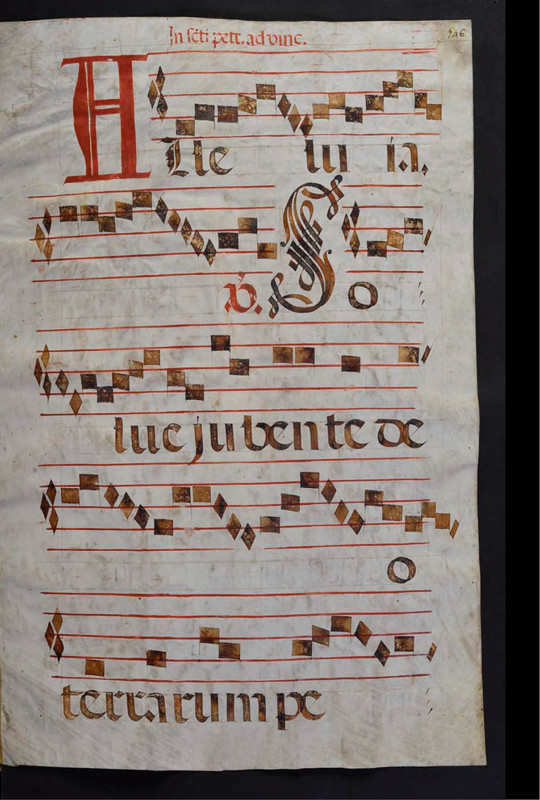 In scti petr. ad vinc. 246
Alle lui ia.
℣. So
lue jubente de
o
terrarum pe